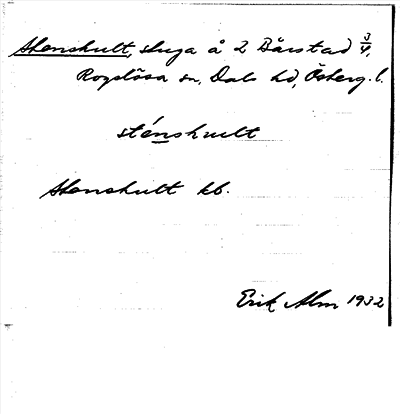 Stenshult, stuga å 2 Bårstad 3/4,
Rogslösa sn, Dals hd, Österg. l.
sténshult
Stenshult kb.
Erik Alm 1932